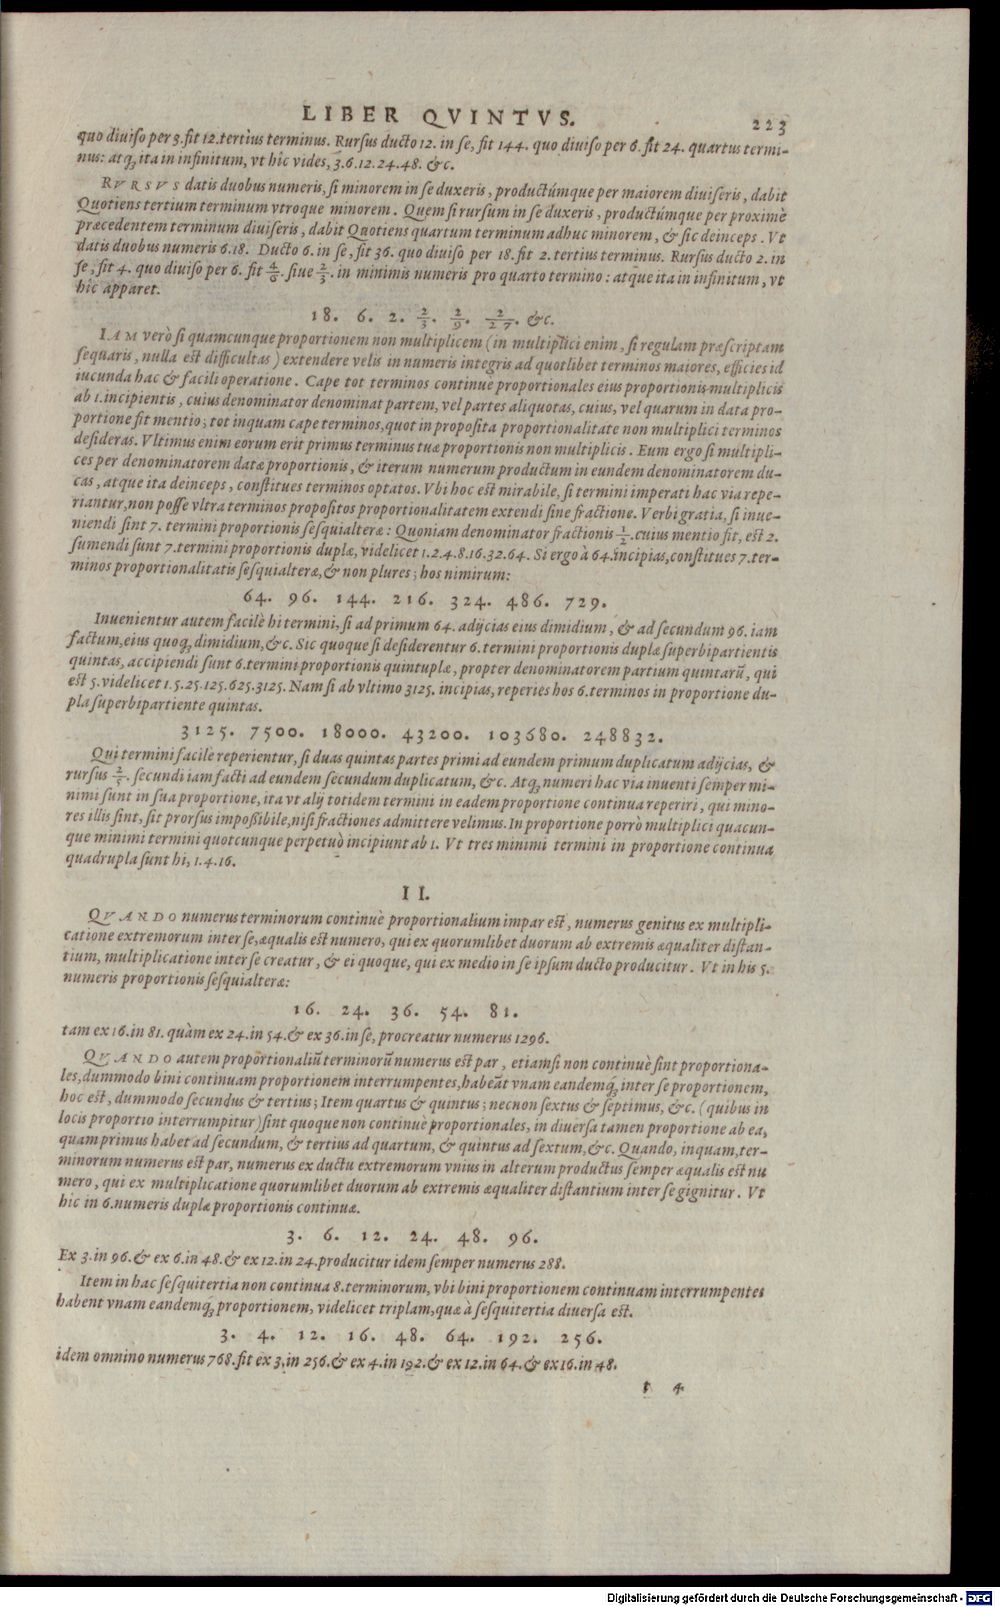 LIBER QVINTVS. 223
quo diuiſo per 3. fit 12. tertius terminus. Rurſus ducto 12. in ſe, fit 144. quo diuiſo per 6. fit 24. quartus termi-
nus: atq; ita in infinitum, vt hic vides, 3. 6. 12. 24. 48. &c.
RVRSVS datis duobus numeris, ſi minorem in ſe duxeris, productúmque per maiorem diuiſeris, dabit
Quotiens tertium terminum vtroque minorem. Quem ſi rurſum in ſe duxeris, productúmque per proximè
præcedentem terminum diuiſeris, dabit Quotiens quartum terminum adhuc minorem, & ſic deinceps. Vt
datis duobus numeris 6. 18. Ducto 6. in ſe, fit 36. quo diuiſo per 18. fit 2. tertius terminus. Rurſus ducto 2. in
ſe, fit 4. quo diuiſo per 6. fit 4/6. ſiue 2/3. in minimis numeris pro quarto termino: atque ita in infinitum, vt
hic apparet.
18. 6. 2. 2/3. 2/9. 2/27. &c.
IAM verò ſi quamcunque proportionem non multiplicem (in multiplici enim, ſi regulam præſcriptam
ſequaris, nulla eſt difficultas) extendere velis in numeris integris ad quotlibet terminos maiores, efficies id
iucunda hac & facili operatione. Cape tot terminos continuè proportionales eius proportionis multiplicis
ab 1. incipientis, cuius denominator denominat partem, vel partes aliquotas, cuius, vel quarum in data pro-
portione fit mentio; tot inquam cape terminos, quot in propoſita proportionalitate non multiplici terminos
deſideras. Vltimus enim eorum erit primus terminus tuæ proportionis non multiplicis. Eum ergo ſi multipli-
ces per denominatorem datæ proportionis, & iterum numerum productum in eundem denominatorem du-
cas, atque ita deinceps, conſtitues terminos optatos. Vbi hoc eſt mirabile, ſi termini imperati hac via repe-
riantur, non poſſe vltra terminos propoſitos proportionalitatem extendi ſine fractione. Verbi gratia, ſi inue-
niendi ſint 7. termini proportionis ſeſquialteræ: Quoniam denominator fractionis 1/2. cuius mentio fit, eſt 2.
ſumendi ſunt 7. termini proportionis duplæ, videlicet 1. 2. 4. 8. 16. 32. 64. Si ergo à 64. incipias, conſtitues 7. ter-
minos proportionalitatis ſeſquialteræ, & non plures; hos nimirum:
64. 96. 144. 216. 324. 486. 729.
Inuenientur autem facilè hi termini, ſi ad primum 64. adijcias eius dimidium, & ad ſecundum 96. iam
factum, eius quoq; dimidium, &c. Sic quoque ſi deſiderentur 6. termini proportionis duplæ ſuperbipartientis
quintas, accipiendi ſunt 6. termini proportionis quintuplæ, propter denominatorem partium quintarū, qui
eſt 5. videlicet 1. 5. 25. 125. 625. 3125. Nam ſi ab vltimo 3125. incipias, reperies hos 6. terminos in proportione du-
pla ſuperbipartiente quintas.
3125. 7500. 18000. 43200. 103680. 248832.
Qui termini facilè reperientur, ſi duas quintas partes primi ad eundem primum duplicatum adijcias, &
rurſus 2/5. ſecundi iam facti ad eundem ſecundum duplicatum, &c. Atq; numeri hac via inuenti ſemper mi-
nimi ſunt in ſua proportione, ita vt alij totidem termini in eadem proportione continua reperiri, qui mino-
res illis ſint, ſit prorſus impoßibile, niſi fractiones admittere velimus. In proportione porrò multiplici quacun-
que minimi termini quotcunque perpetuò incipiunt ab 1. Vt tres minimi termini in proportione continua
quadrupla ſunt hi, 1. 4. 16.
II.
QVANDO numerus terminorum continuè proportionalium impar eſt, numerus genitus ex multipli-
catione extremorum inter ſe, æqualis eſt numero, qui ex quorumlibet duorum ab extremis æqualiter diſtan-
tium, multiplicatione inter ſe creatur, & ei quoque, qui ex medio in ſe ipſum ducto producitur. Vt in his 5.
numeris proportionis ſeſquialteræ:
16. 24. 36. 54. 81.
tam ex 16. in 81. quàm ex 24. in 54. & ex 36. in ſe, procreatur numerus 1296.
QVANDO autem proportionaliū terminorū numerus eſt par, etiamſi non continuè ſint proportiona-
les, dummodo bini continuam proportionem interrumpentes, habeāt vnam eandemq́; inter ſe proportionem,
hoc eſt, dummodo ſecundus & tertius; Item quartus & quintus; necnon ſextus & ſeptimus, &c. (quibus in
locis proportio interrumpitur) ſint quoque non continuè proportionales, in diuerſa tamen proportione ab ea,
quam primus habet ad ſecundum, & tertius ad quartum, & quintus ad ſextum, &c. Quando, inquam, ter-
minorum numerus eſt par, numerus ex ductu extremorum vnius in alterum productus ſemper æqualis eſt nu
mero, qui ex multiplicatione quorumlibet duorum ab extremis æqualiter diſtantium inter ſe gignitur. Vt
hic in 6. numeris duplæ proportionis continuæ.
3. 6. 12. 24. 48. 96.
Ex 3. in 96. & ex 6. in 48. & ex 12. in 24. producitur idem ſemper numerus 288.
Item in hac ſeſquitertia non continua 8. terminorum, vbi bini proportionem continuam interrumpentes
habent vnam eandemq́; proportionem, videlicet triplam, quæ à ſeſquitertia diuerſa eſt.
3. 4. 12. 16. 48. 64. 192. 256.
idem omnino numerus 768. fit ex 3. in 256. & ex 4. in 192. & ex 12. in 64. & ex 16. in 48.
t 4
Digitalisierung gefördert durch die Deutsche Forschungsgemeinschaft - DFG